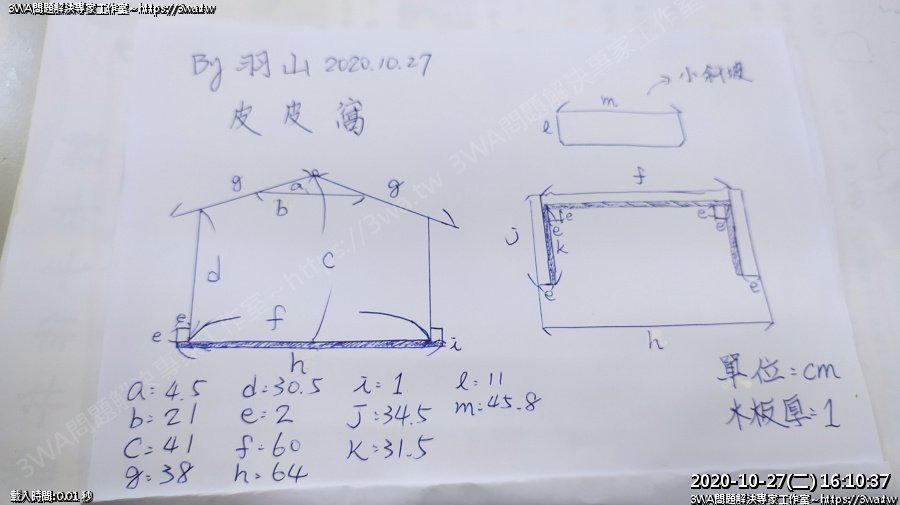 3WA問題解決專家工作室~https://3wa.tw
By 羽山 2020.10.27
皮皮窩
小斜坡
m
l
g
a
g
b
f
d
c
j
e
e
e
e
k
e
e
e
f
e
i
h
h
a=4.5 d=30.5 i=1 l=11
b=21 e=2 J=34.5 m=45.8
C=41 f=60 K=31.5
g=38 h=64
單位=cm
木板厚=1
3WA問題解決專家工作室~https://3wa.tw 3WA問題解決專家工作室
載入時間:0.01 秒
2020-10-27(二) 16:10:37
3WA問題解決專家工作室~https://3wa.tw